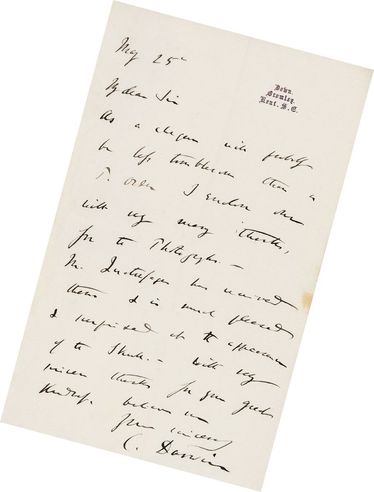 May 25th
Down.
Bromley.
Kent. S.E.
My dear Sir
As a cheque will probably
be less troublesome than a
P. order I enclose one
with very many thanks,
for the Photographs. —
Mr. has received
them & is much pleased
& surprised at the appearance
of the — With very
sincere thanks for your great
kindness believe me
Yours sincerely
C. Darwin